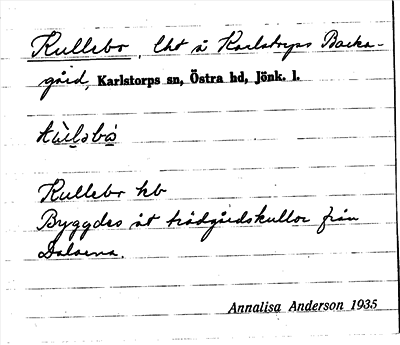 Kullebo, lht å Karlstorps Backa-
gård, Karlstorps sn, Östra hd, Jönk. l.
Kullebo hb
Byggdes åt trädgårdskullor från
Dalarna.
Annalisa Anderson 1935